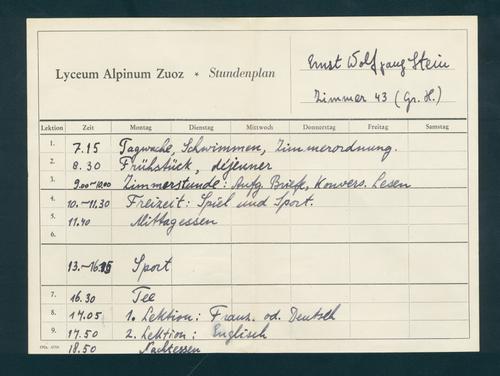 Ernst Wolfgang Stein
Lyceum Alpinum Zuoz * Stundenplan
Zimmer 43 (Gr. H.)
Lektion Zeit Montag Dienstag Mittwoch Donnerstag Freitag Samstag
1. 7.15 Tagwache, Schwimmen, Zimmerordnung.
2. 8.30 Frühstück, déjeuner
3. 9.00-10.00 Zimmerstunde: Aufg. Briefe, Konvers. Lesen
4. 10.-11.30 Freizeit: Spiel und Sport.
5. 11.40 Mittagessen
6.
13.-16.15 Sport
7. 16.30 Tee
8. 17.05 1. Lektion: Franz. od. Deutsch
9. 17.50 2. Lektion: Englisch
18.50 Nachtessen